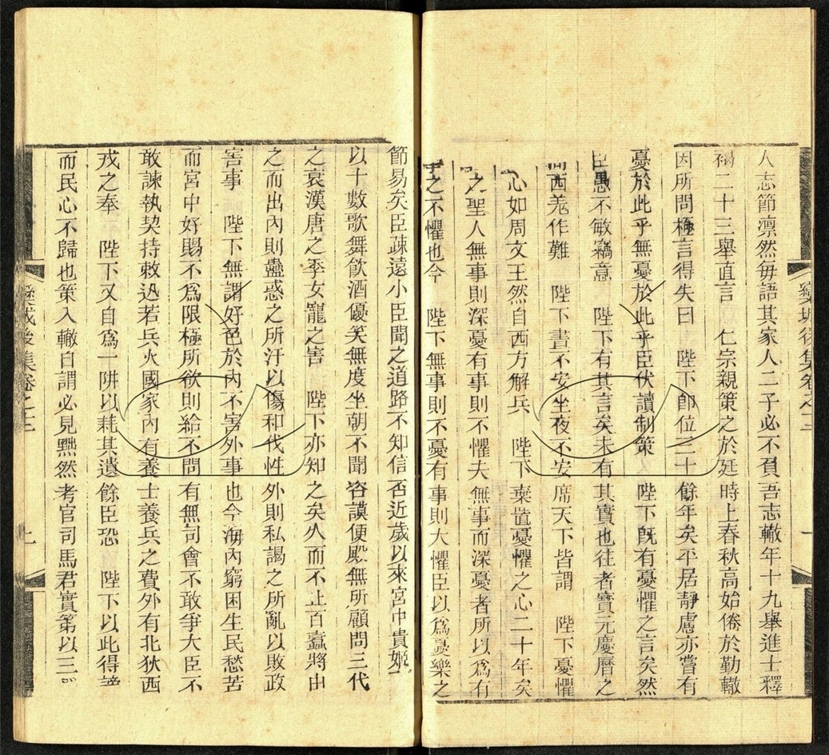 人志節凛然每語其家人二子必不負吾志轍年十九舉進士釋
褐二十三舉直言 仁宗親策之於廷時上春秋高始倦於勤轍
因所問極言得失曰 陛下卽位三十餘年矣平居靜慮亦嘗有
憂於此乎無憂於此乎臣伏讀制策 陛下旣有憂懼之言矣然
臣愚不敏竊意 陛下有其言矣未有其實也往者寶元慶曆之
間西羗作難 陛下晝不安坐夜不安席天下皆謂 陛下憂懼
小心如周文王然自西方解兵 陛下棄置憂懼之心二十年矣
古之聖人無事則深憂有事則不懼夫無事而深憂者所以爲有
事之不懼也今 陛下無事則不憂有事則大懼臣以爲憂樂之
節易矣臣疎遠小臣聞之道路不知信否近歲以來宮中貴姬
以十數歌舞飮酒優笑無度坐朝不聞咨謨便殿無所顧問三代
之衰漢唐之季女寵之害 陛下亦知之矣久而不止百蠹將由
之而出內則蠱惑之所汙以傷和伐性外則私謁之所亂以敗政
害事 陛下無謂好色於內不害外事也今海內窮困生民愁苦
而宮中好賜不爲限極所欲則給不問有無司會不敢爭大臣不
敢諫執契持敕迅若兵火國家內有養士養兵之費外有北狄西
戎之奉 陛下又自爲一阱以耗其遺餘臣恐 陛下以此得謗
而民心不歸也策入轍自謂必見黜然考官司馬君實第以三
欒城後集卷之十二